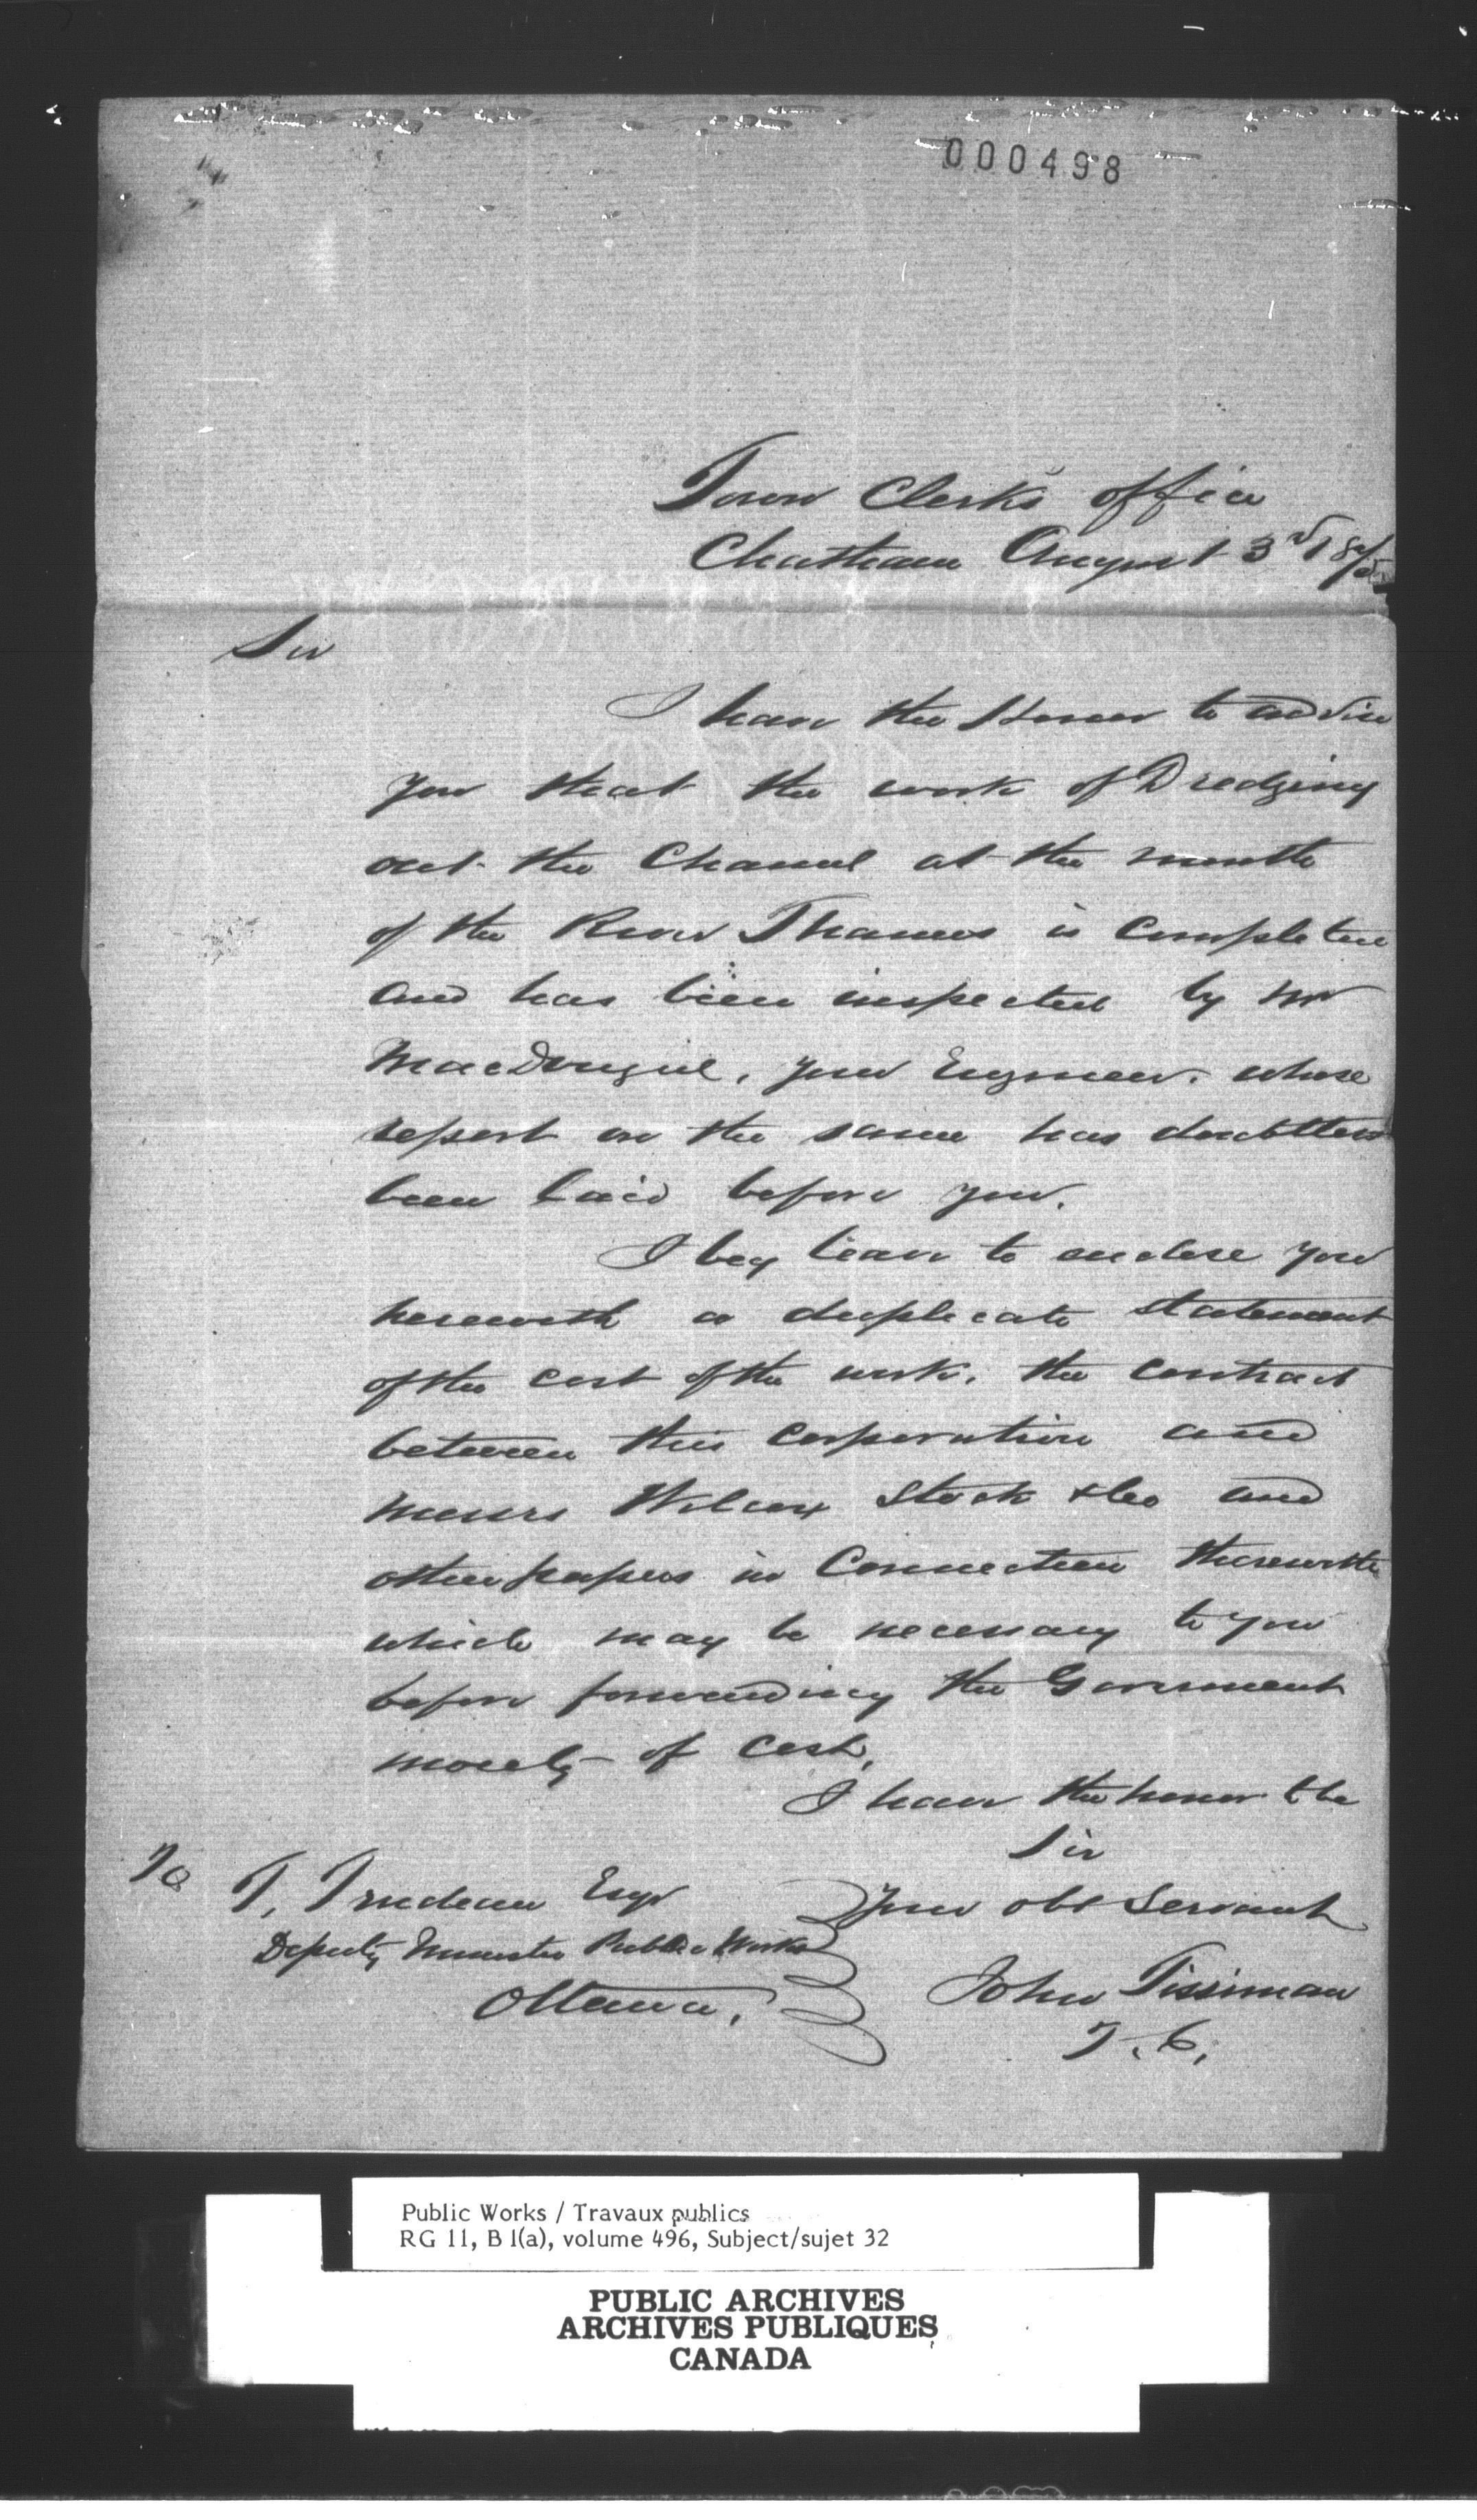 000498
Town Clerk's office
Chatham August 3rd 18
Sir
I have the Honor to advise
you that the work of Dredging
out the Channel at the mouth
of the River Thames is completed
and has been inspected by Mr
MacDougul, your Engineer. whose
report on the same has doubtless
been laid before you.
I beg leave to enclose you
herewith a duplicate statement
of the cost of the work. the contract
between this corporation and
messrs Wilcox Stock & Co and
other papers in Connection therewith
which may be necessary to you
before forwarding the Government
moiety of cost,
I have the honor to be
Sir
Your obt Servant
John Tissiman
T. C.
To
T, Trudeau Esqr
Deputy Minister Public Works
Ottawa,
Public Works / Travaux publics
RG 11, B 1(a), volume 496, Subject/sujet 32
PUBLIC ARCHIVES
ARCHIVES PUBLIQUES
CANADA